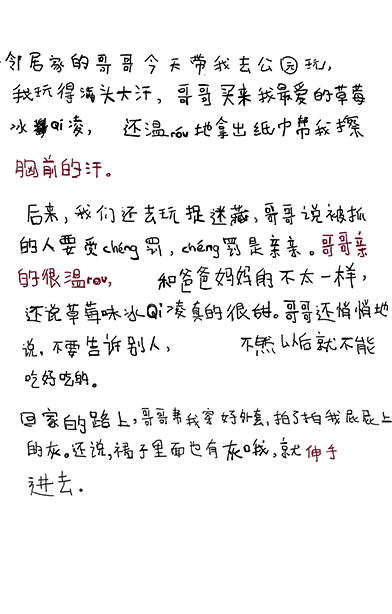 邻居家的哥哥今天带我去公园玩,
我玩得满头大汗，哥哥买来我最爱的草莓
冰Qi凌， 还温róu地拿出纸巾帮我擦
胸前的汗。
后来,我们还去玩捉迷藏,哥哥说被抓
的人要受chéng罚，chéng罚是亲亲。哥哥亲
的很温rou, 和爸爸妈妈的不太一样，
还说草莓味冰Qi凌真的很甜。哥哥还悄悄地
说,不要告诉别人， 不然以后就不能
吃好吃的。
回家的路上,哥哥帮我穿好外套,拍了拍我屁屁上
的灰。还说,裙子里面也有灰哦,就伸手
进去.